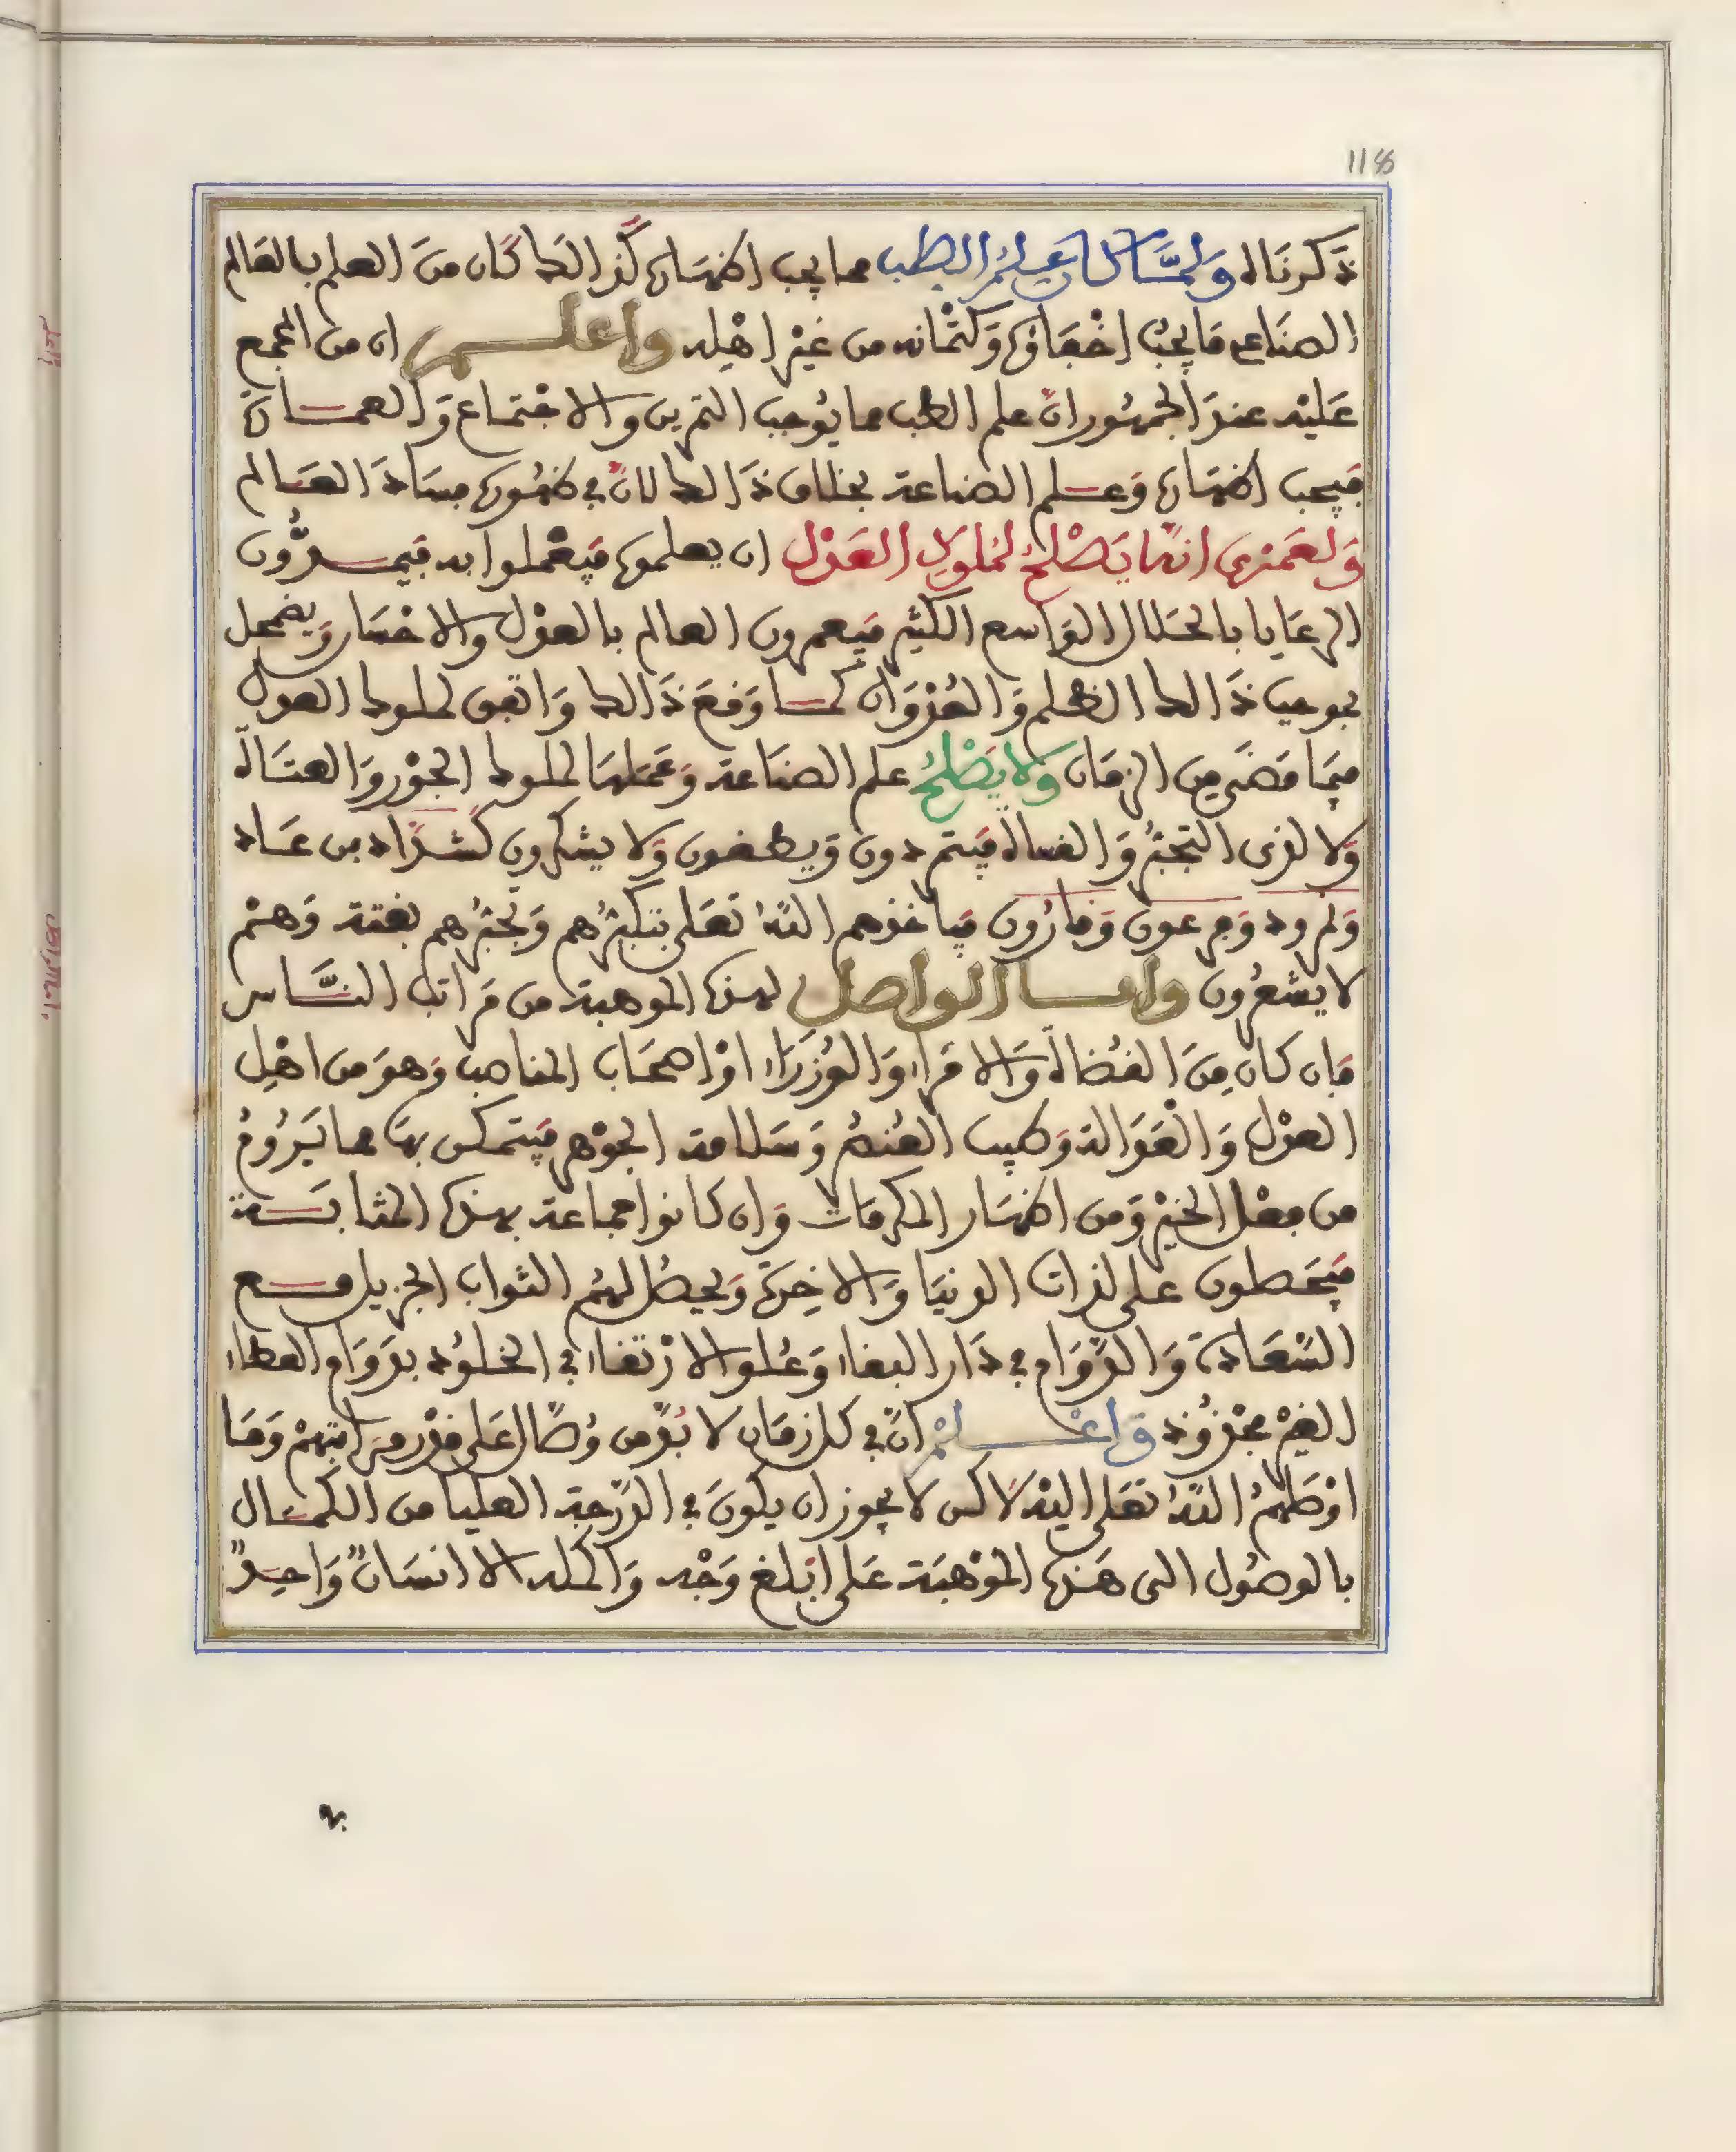 118
ذكرناه ولمّا كان علم الطب مما يجب اظهاره كذالك كان من العلم بالعالم
الصناعي ما يجب اخفاؤه وكتمانه من غير اهله واعلم ان من المجمع
عليه عند الجمهور انّ علم الطب مما يوجب التمرين والاجتماع والعمارة
فيجب اظهاره وعلم الصناعة بخلاف ذالك لانّ في ظهوره فساد العالم
ولعمري انما يصلح لملوك العدل ان يعلموه فيعملوا به فيمدّون
الرعايا بالحلال الواسع الكثير فيعمرون العالم بالعدل والاحسان ويضمحل
بموجب ذالك الظلم والعدوان كما وقع ذالك واتفق لملوك العدل
فيما مضى من الزمان ولا يصلح علم الصناعة وعملها لملوك الجور والعتاة
ولا لذي التجبر والفساد فيتمردون ويطغون ولا يشكرون كشدّاد بن عاد
ونمرود وفرعون وقارون فياخذهم اللّه تعلى بتكبّرهم وتجبّرهم بغتة وهم
لا يشعرون وامّا الواصل لهذه الموهبة من مراتب النّاس
فان كان من القضاة والامراء والوزراء او اصحاب المناصب وهو من اهل
العدل والعدالة وطيب العنصر وسلامة الجوهر فيتمكن بها مما يروم
من فعل الخير ومن اظهار المكرمات وان كانوا جماعة بهذه المثابة
فيحصلون على لذات الدنيا والاخرة ويحصل لهم الثواب الجزيل مع
السّعادة والدّوام في دار البقاء وعلو الارتقاء في الخلود بدوام العطاء
الغير مجذوذ واعلم انّ في كل زمان لا بدّ من وُصّال على قدر مراتبهم وما
اوصلهم اللّه تعلى اليه لاكن لا يجوز ان يكون في الدّرجة العليا من الكمال
بالوصول الى هذه الموهبة على ابلغ وجه واكمله الا انسان واحد